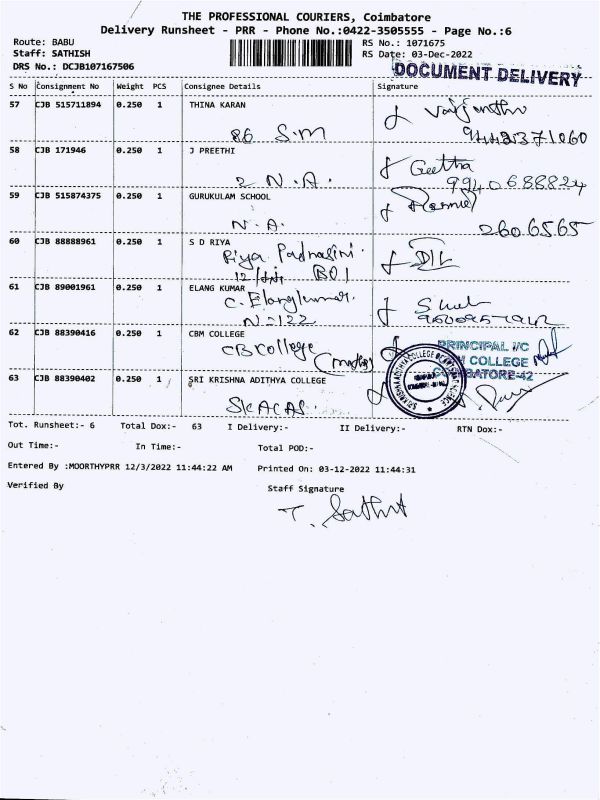 THE PROFESSIONAL COURIERS, Coimbatore
Delivery Runsheet - PRR - Phone No.:0422-3505555 - Page No.:6
Route: BABU
Staff: SATHISH
DRS No.: DCJB107167506
RS No.: 1071675
RS Date: 03-Dec-2022
DOCUMENT DELIVERY
S No Consignment No Weight PCS Consignee Details Signature
57 CJB 515711894 0.250 1 THINA KARAN
86 S.M
58 CJB 171946 0.250 1 J PREETHI Geetha
2 N.A. 9940688824
59 CJB 515874375 0.250 1 GURUKULAM SCHOOL
N.A. 2606565
60 CJB 88888961 0.250 1 S D RIYA
Riya Padmasini.
61 CJB 89001961 0.250 1 ELANG KUMAR
C. Elangkumar.
N=122
62 CJB 88390416 0.250 1 CBM COLLEGE PRINCIPAL I/C
CB College COLLEGE
COIMBATORE-42
63 CJB 88390402 0.250 1 SRI KRISHNA ADITHYA COLLEGE
SKACAS.
Tot. Runsheet:- 6 Total Dox:- 63 I Delivery:- II Delivery:- RTN Dox:-
Out Time:- In Time:- Total POD:-
Entered By :MOORTHYPRR 12/3/2022 11:44:22 AM Printed On: 03-12-2022 11:44:31
Verified By Staff Signature
T. Sathis